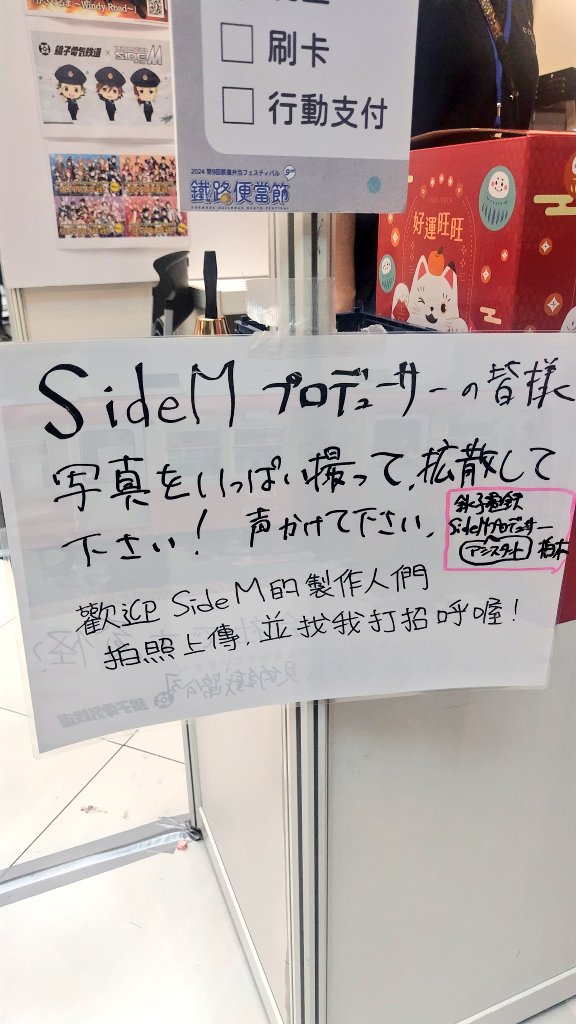 ~Windy Road~
銚子電気鉄道 × SIDEM
刷卡
行動支付
2024 第9回鉄道弁当フェスティバル
鐵路便當節
好運旺旺
SideM プロデューサーの皆様
写真をいっぱい撮って、拡散して
下さい! 声かけて下さい、
銚子電鉄
SideMプロデューサー
アシスタント 柏木
歡迎 SideM的製作人們
拍照上傳,並找我打招呼喔!
銚子電気鉄道